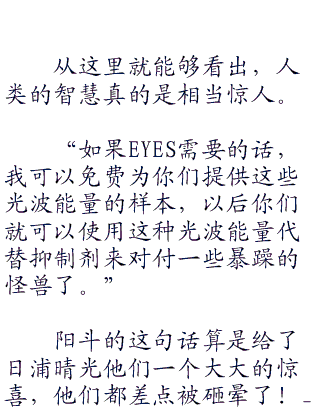 从这里就能够看出，人
类的智慧真的是相当惊人。
“如果EYES需要的话，
我可以免费为你们提供这些
光波能量的样本，以后你们
就可以使用这种光波能量代
替抑制剂来对付一些暴躁的
怪兽了。”
阳斗的这句话算是给了
日浦晴光他们一个大大的惊
喜，他们都差点被砸晕了！